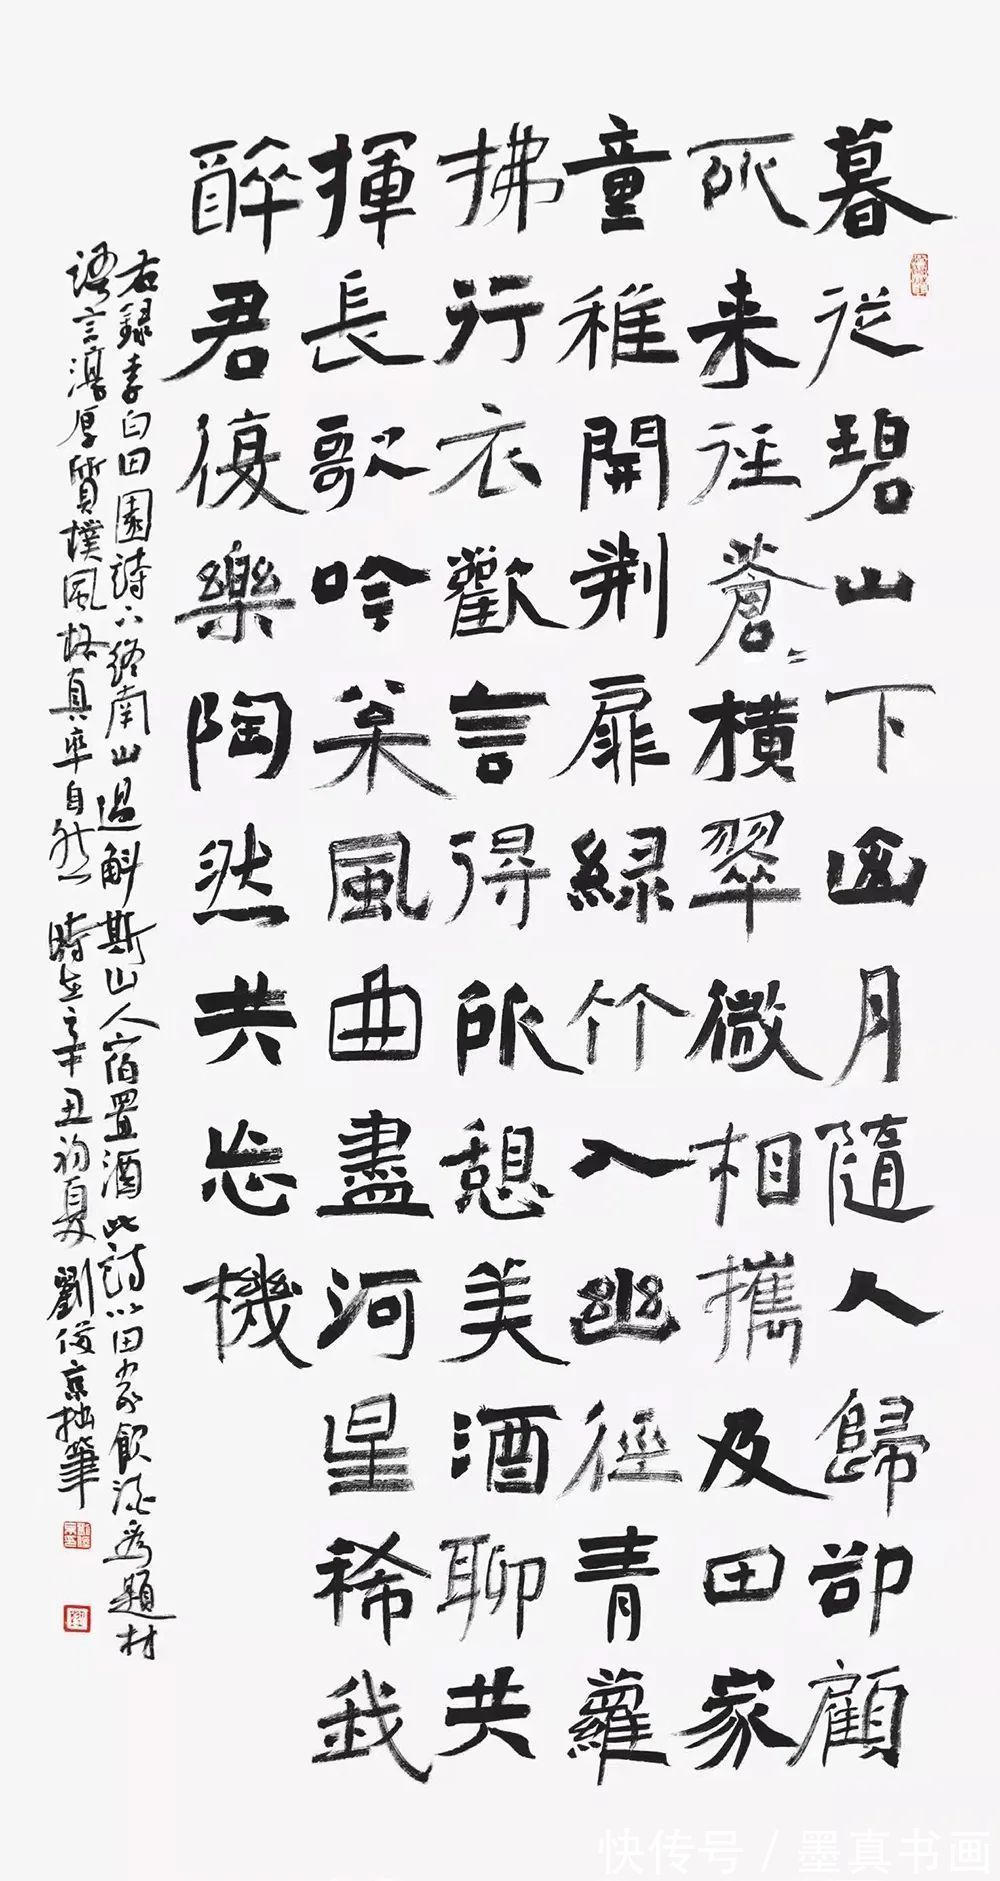 暮從碧山下山月隨人歸卻顧
所来徑蒼〻横翠微相攜及田家
童稚開荆扉緑竹入幽徑青蘿
拂行衣歡言得所憩美酒聊共
揮長歌吟枩風曲盡河星稀我
醉君復樂陶然共忘機
右録李白田園詩下終南山過斛斯山人宿置酒此詩以田家飲酒為題材
語言淳厚質樸風格真率自然 時在辛丑初夏 劉俊京拙筆
快传号 / 墨真书画